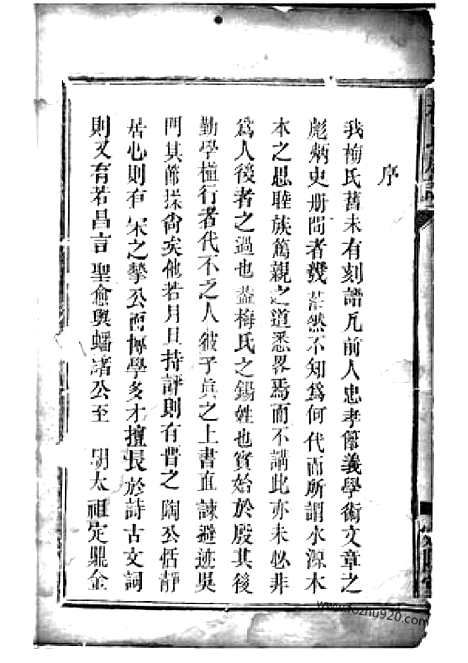 序
我梅氏舊未有刻譜凡前人忠孝節義學術文章之
彪炳史册問者幾茫然不知為何代而所謂水源木
本之思睦族篤親之道悉畧焉而不講此亦未必非
為人後者之過也蓋梅氏之錫姓也實始於殷其後
勤學植行者代不乏人彼子真之上書直諫避迹吳
門其節操尚矣他若月旦持評則有晋之 陶公恬靜
居心則有宋之摯公而博學多才擅長於詩古文詞
則又有若昌言 聖愈與蟠渚公至 明太祖定鼎金
www.fozhu920.com